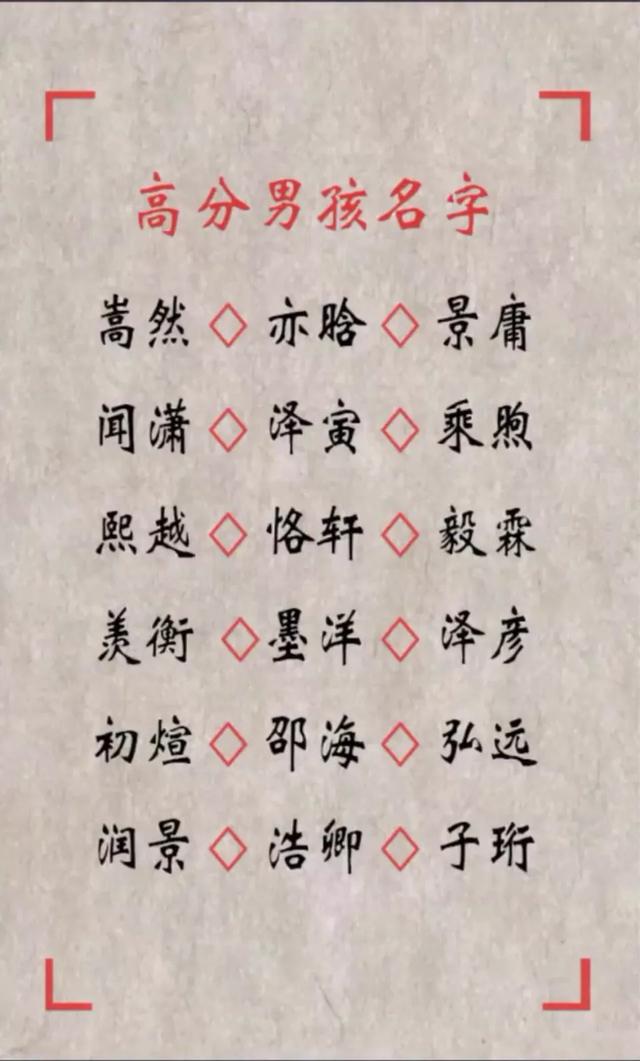 高分男孩名字
嵩然◇亦晗◇景庸
闻潇◇泽寅◇乘煦
熙越◇恪轩◇毅霖
羡衡◇墨洋◇泽彦
初煊◇邵海◇弘远
润景◇浩卿◇子珩